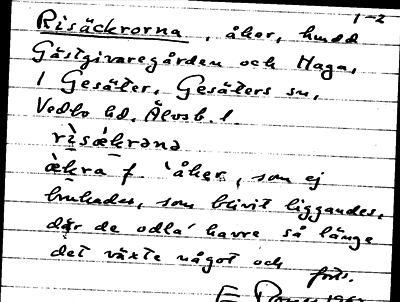 1-2
Risäckrorna, åker, hmdd
Gästgivaregården och Haga,
1 Gesäter, Gesäters sn,
Vedbo hd. Älvsb. l.
rìsækrana
æ̀kra f. 'åker, som ej
brukades, som blivit liggandes,
där de odla' havre så länge
det växte något och
forts.